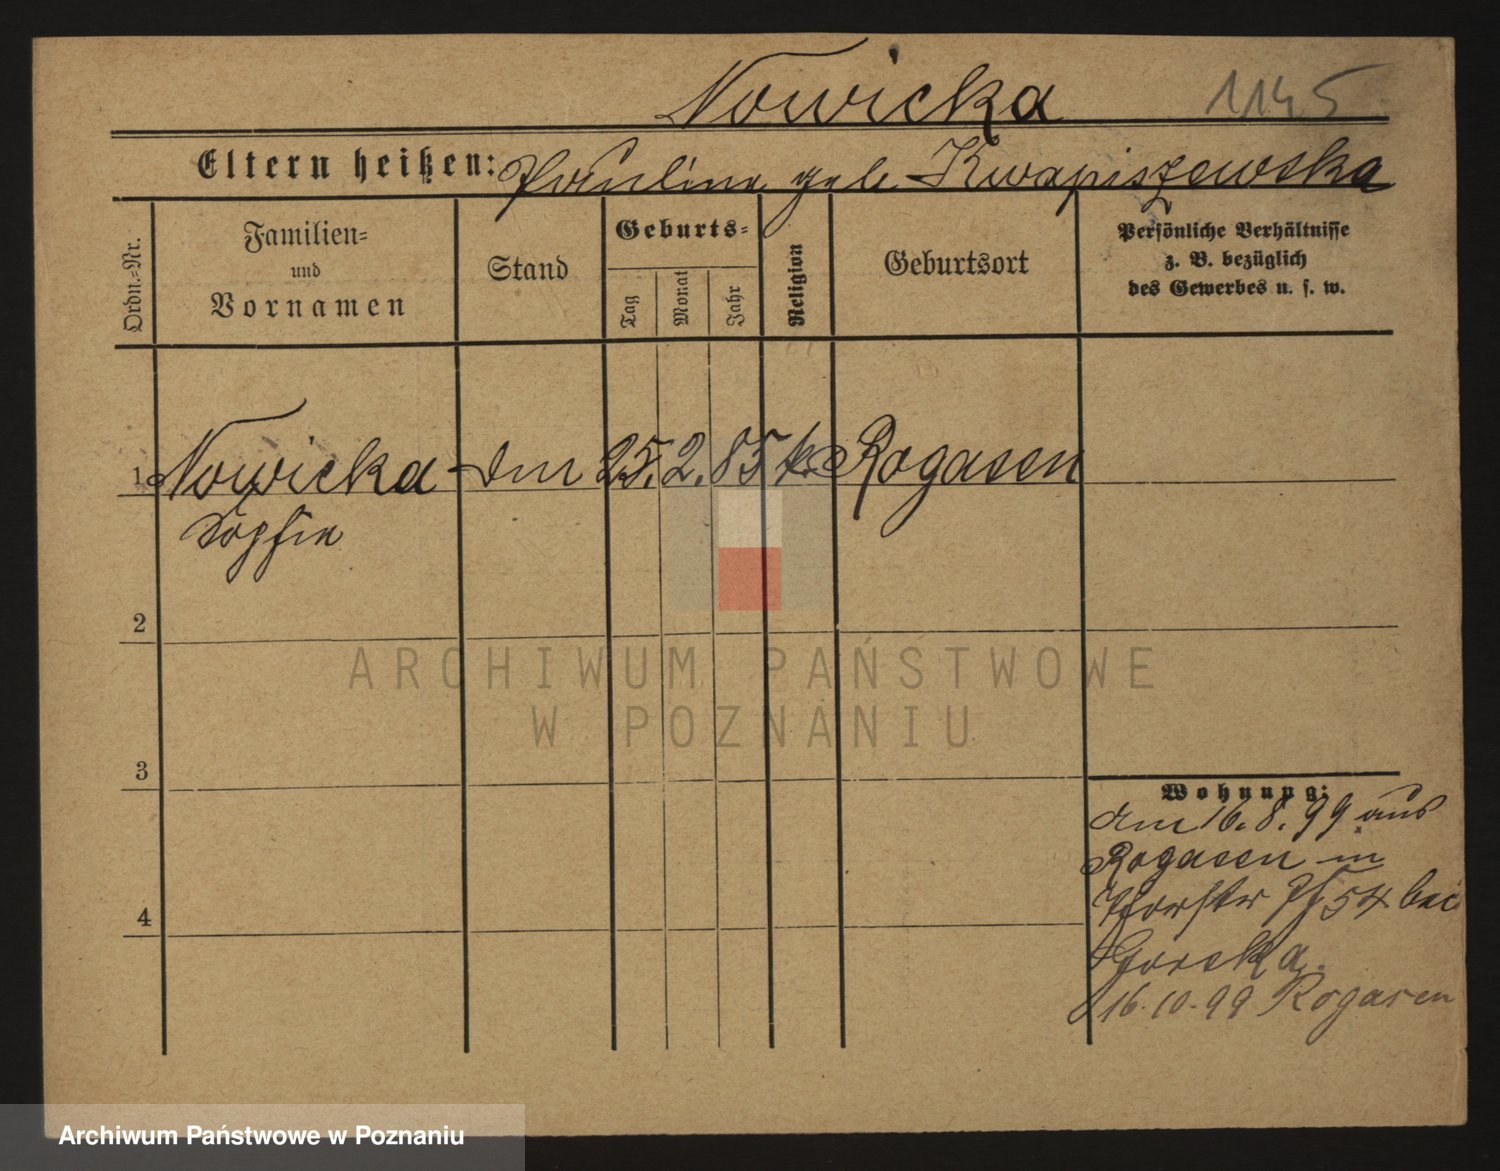 Nowicka 1145
Eltern heißen: Pauline geb Kwapiszewska
Ordn.=Nr.
Familien=
und
Vornamen
Stand
Geburts=
Tag
Monat
Jahr
Religion
Geburtsort
Persönliche Verhältnisse
z. B. bezüglich
des Gewerbes u. s. w.
1 Nowicka 25. 2. 85 k. Rogasen
Sophie
2
3
4
Wohnung:
am 16. 8. 99 aus
Rogasen in
54 bei
Gorska.
16.10.99 Rogasen
ARCHIWUM PAŃSTWOWE
W POZNANIU
Archiwum Państwowe w Poznaniu